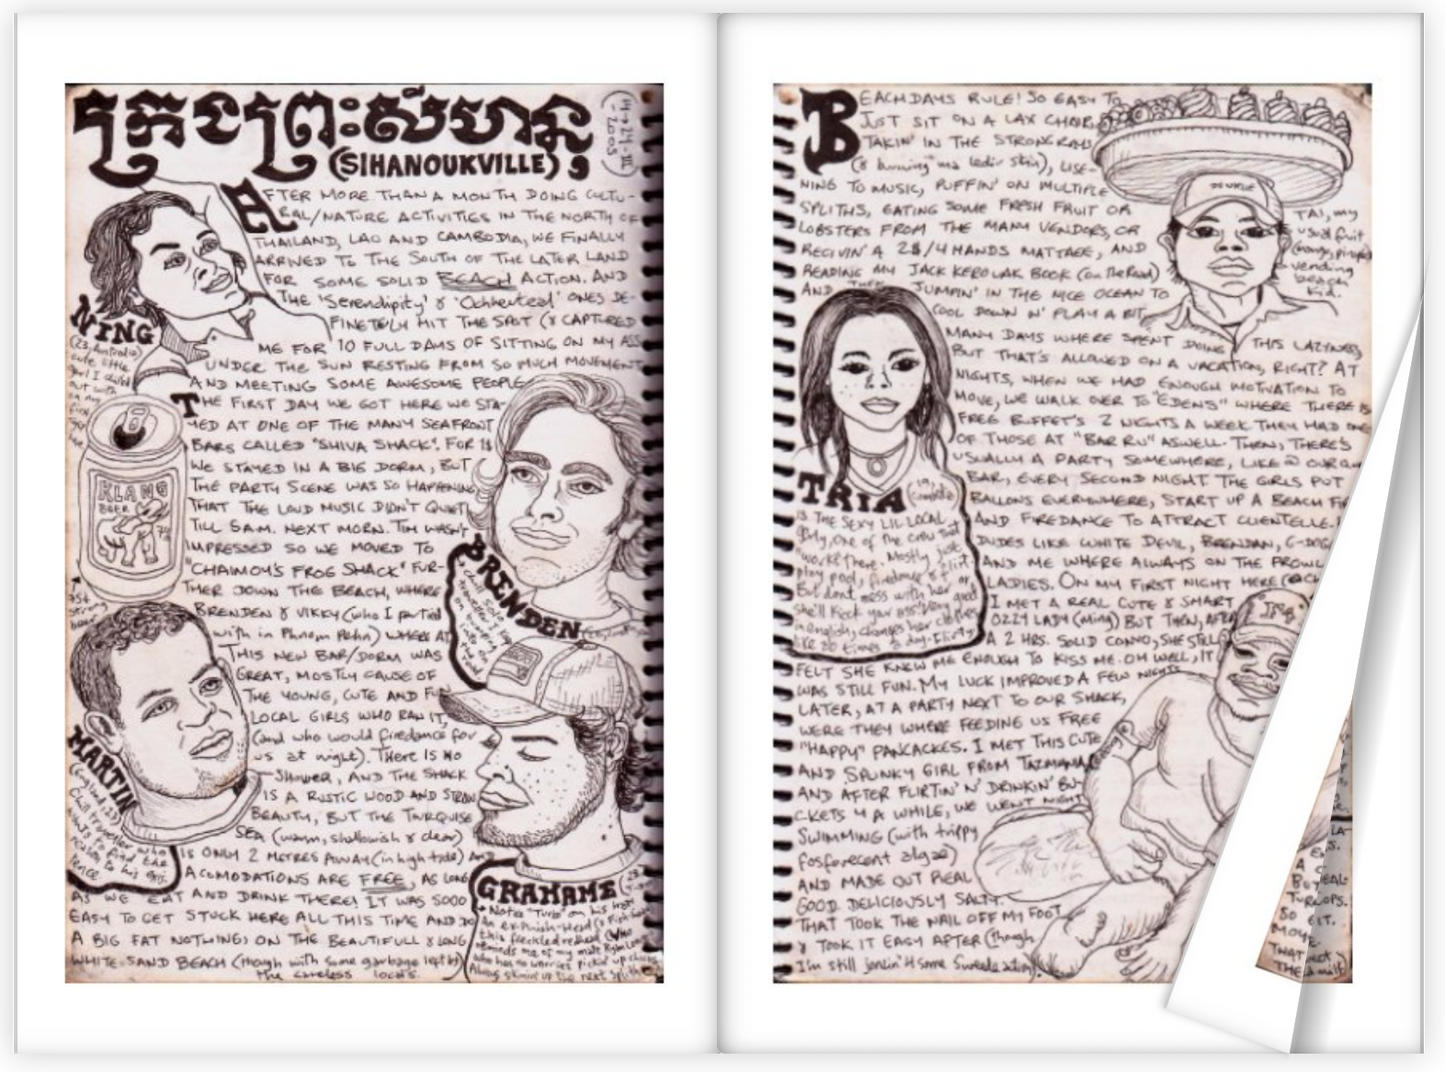 ក្រុងព្រះសីហនុ
(SIHANOUKVILLE)
(14→24-III
-2005)
AFTER MORE THAN A MONTH DOING CULTU-
RAL/NATURE ACTIVITIES IN THE NORTH OF
THAILAND, LAO AND CAMBODIA, WE FINALLY
ARRIVED TO THE SOUTH OF THE LATER LAND
FOR SOME SOLID BEACH ACTION. AND
THE 'Serendipity' & 'Ochheuteal' ONES DE-
FINETELY HIT THE SPOT (& CAPTURED
ME FOR 10 FULL DAYS OF SITTING ON MY ASS
UNDER THE SUN RESTING FROM SO MUCH MOVEMENT
AND MEETING SOME AWESOME PEOPLE
NING
(23, Australia)
cute little
girl I
out with
on my
first
THE FIRST DAY WE GOT HERE WE STA-
YED AT ONE OF THE MANY SEAFRONT
BARS CALLED "SHIVA SHACK". FOR 1$
WE STAYED IN A BIG DORM, BUT
THE PARTY SCENE WAS SO HAPPENING
THAT THE LOUD MUSIC DIDN'T QUIET
TILL 6 A.M. NEXT MORN. TIM WASN'T
IMPRESSED SO WE MOVED TO
"CHAIMOY'S FROG SHACK" FUR-
THER DOWN THE BEACH, WHERE
BRENDEN & VIKKY (who I partied
with in Phnom Pehn) WHERE AT
THIS NEW BAR/DORM WAS
GREAT, MOSTLY CAUSE OF
THE YOUNG, CUTE AND FUN
LOCAL GIRLS WHO RAN IT,
(and who would firedance for
us at night). THERE IS NO
SHOWER, AND THE SHACK
IS A RUSTIC WOOD AND STRAW
BEAUTY, BUT THE TURQUISE
SEA (warm, shallowish & clear)
IS ONLY 2 METRES AWAY (in high tide) AND
ACOMODATIONS ARE FREE, AS LONG
AS WE EAT AND DRINK THERE! IT WAS SOOO
EASY TO GET STUCK HERE ALL THIS TIME AND DO
A BIG FAT NOTHING; ON THE BEAUTIFULL & LONG
WHITE-SAND BEACH (though with some garbage left by
the careless locals.
KLANG
BEER
7%
strong
beer
BRENDEN
chill solo
traveller
on
into on
the road
MARTIN
(England, 23)
Chill traveller who
wants to find the
reason to his exis-
tence.
GRAHAME
Notice "Turbo" on his hat!
An ex-Phish-Head
this freckled redhead (Who
reminds me of my mate
who has no worries pickin' up chicks
Always skinin' up the next spliff
BEACH DAYS RULE! SO EASY TO
JUST SIT ON A LAX CHAIR,
TAKIN' IN THE STRONG RAYS
(& burning ma ledir skin), LISE-
NING TO MUSIC, PUFFIN' ON MULTIPLE
SPLITHS, EATING SOME FRESH FRUIT OR
LOBSTERS FROM THE MANY VENDORS, OR
RECIVIN' A 2$/4 HANDS MATTAGE, AND
READING MY JACK KEROUAK BOOK (on the Road)
AND JUMPIN' IN THE NICE OCEAN TO
COOL DOWN N' PLAY A BIT.
TAI, my
usual fruit
vending
beach
kid.
MANY DAYS WHERE SPENT DOING THIS LAZYNESS,
BUT THAT'S ALLOWED ON A VACATION, RIGHT? AT
NIGHTS, WHEN WE HAD ENOUGH MOTIVATION TO
MOVE, WE WALK OVER TO "EDENS" WHERE THERE IS
FREE BUFFET'S 2 NIGHTS A WEEK THEY HAD ONE
OF THOSE AT "BAR RU" ASWELL. THEN, THERE'S
USUALLY A PARTY SOMEWHERE, LIKE @ OUR
BAR, EVERY SECOND NIGHT THE GIRLS PUT
BALLONS EVERYWHERE, START UP A BEACH
AND FIREDANCE TO ATTRACT CLIENTELLE.
DUDES LIKE WHITE DEVIL, BRENDAN, G-DOG
AND ME WHERE ALWAYS ON THE PROWL
LADIES. ON MY FIRST NIGHT HERE
I MET A REAL CUTE & SMART
OZZY LADY (Ning) BUT THEN, AFTER
A 2 HRS. SOLID CONVO, SHE STILL
FELT SHE KNEW ME ENOUGH TO KISS ME. OH WELL, IT
WAS STILL FUN. MY LUCK IMPROVED A FEW NIGHTS
LATER, AT A PARTY NEXT TO OUR SHACK,
WERE THEY WHERE FEEDING US FREE
"HAPPY" PANCACKES. I MET THIS CUTE
AND SPUNKY GIRL FROM TAZMANIA
AND AFTER FLIRTIN' N' DRINKIN' BU-
CKETS 4 A WHILE, WE WENT NIGHT
SWIMMING (with trippy
fosforecent algae)
AND MADE OUT REAL
GOOD. DELICIOUSLY SALTY.
THAT TOOK THE NAIL OFF MY FOOT
& TOOK IT EASY AFTER (though
I'm still
TRIA
IS THE SEXY LIL LOCAL
Girly, One of the crew that
"works" there. Mostly just
play pool, firedance & flirt
But dont mess with her or
she'll kick your ass! Very good
in english, changes her clothes
like 20 times a day. Flirty